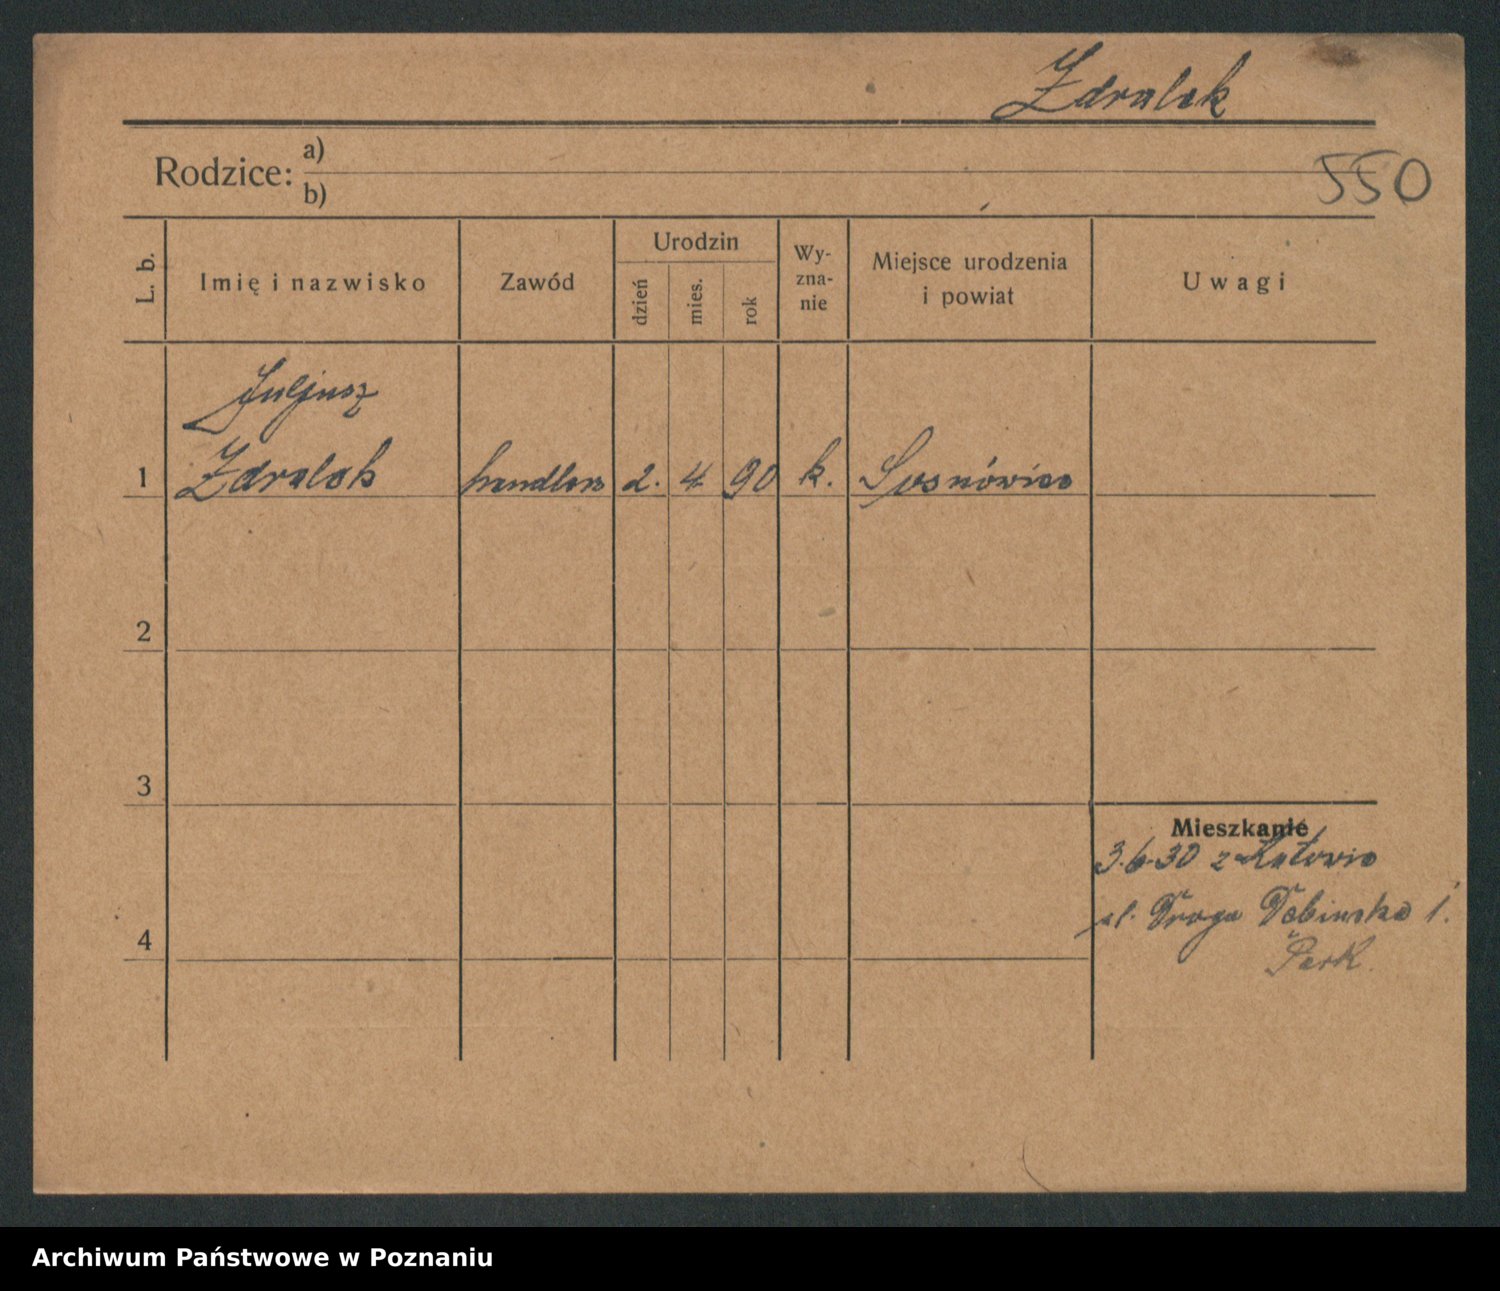 Zdralek
Rodzice: a)
b)
550
L. b.
Imię i nazwisko
Zawód
Urodzin
dzień
mies.
rok
Wy-
zna-
nie
Miejsce urodzenia
i powiat
Uwagi
Juljusz
1 Zdralek handlarz 2. 4 90 k. Sosnówiec
2
3
Mieszkanie
3.6.30 z Katowic
ul. Droga Dębińska 1.
4
Park.
Archiwum Państwowe w Poznaniu